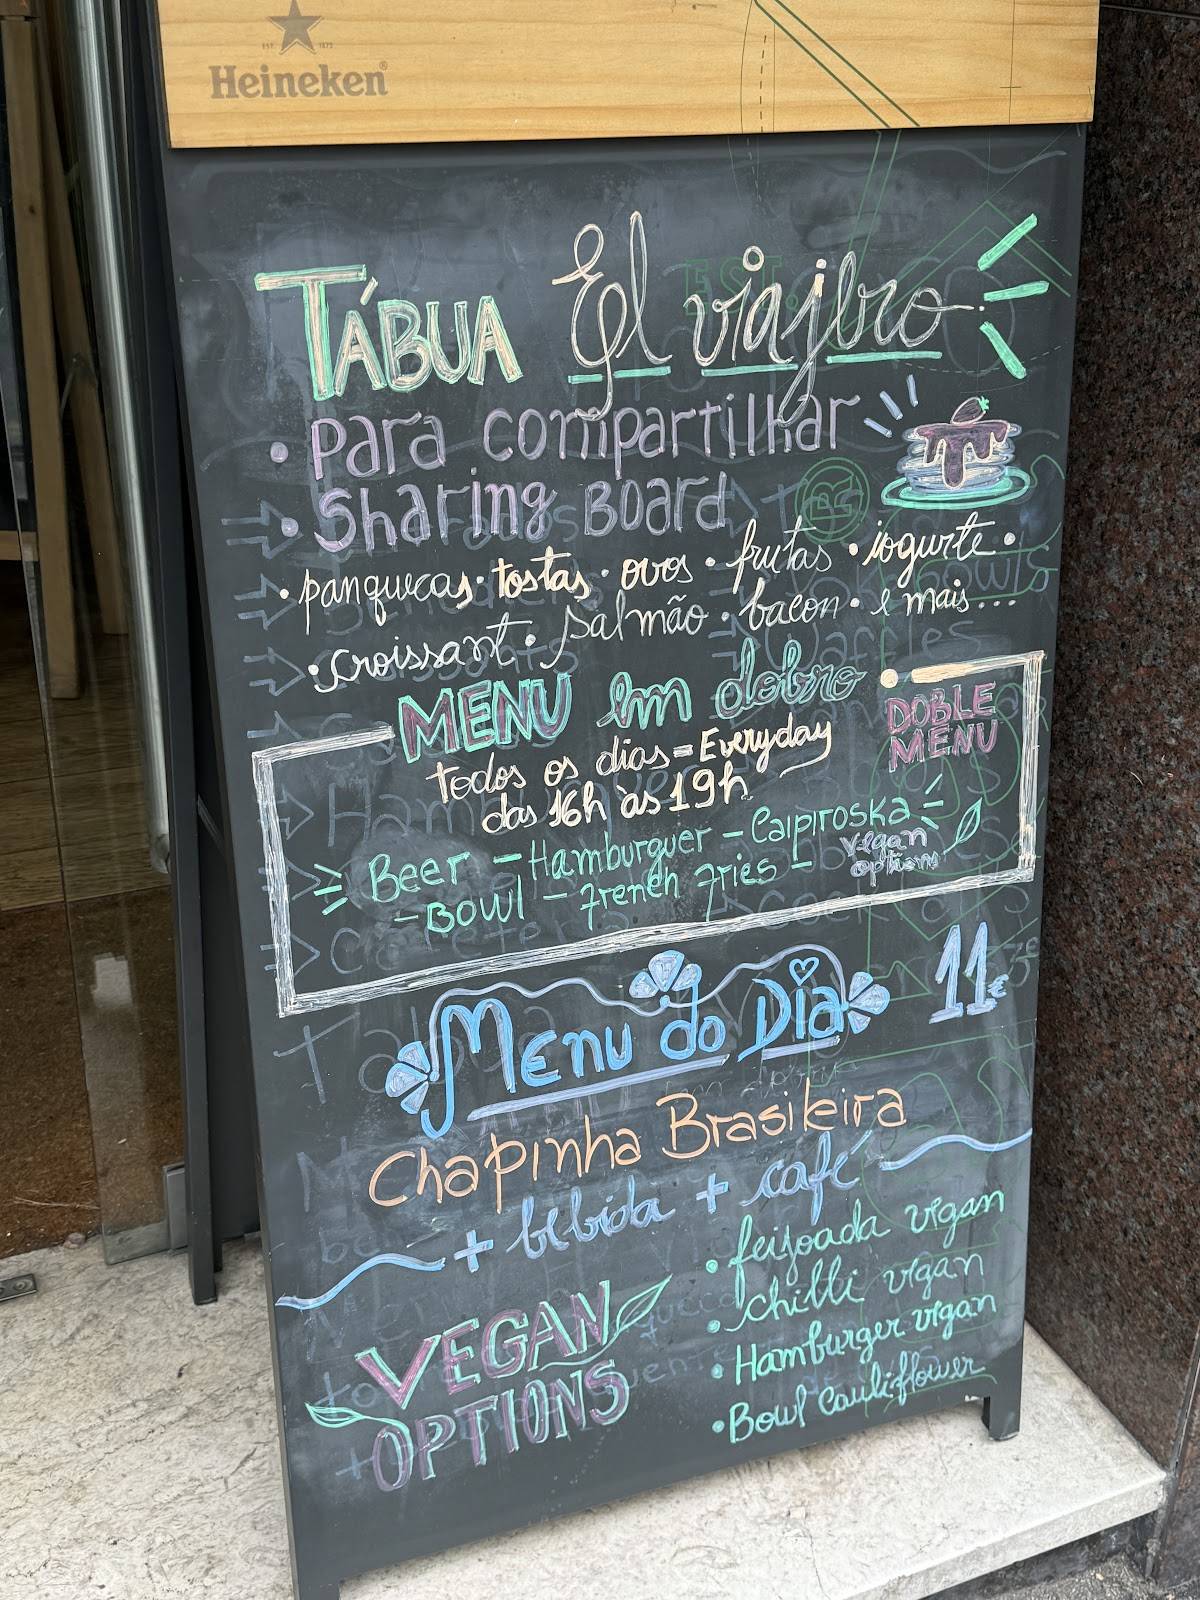 EST. 1873
Heineken®
TÁBUA El viajero
• Para compartilhar
• Sharing BOARD
• panquecas • tostas • ovos • frutas • iogurte •
• croissant • salmão • bacon • e mais...
MENU em dobro
DOBLE
MENU
todos os dias = Everyday
das 16h às 19h
Beer - Hamburguer - Caipiroska
- BOWL - French Fries -
vegan
options
Menu do Dia 11€
Chapinha Brasileira
+ bebida + café
VEGAN
OPTIONS
• feijoada vegan
• chilli vegan
• Hamburger vegan
• Bowl Cauliflower